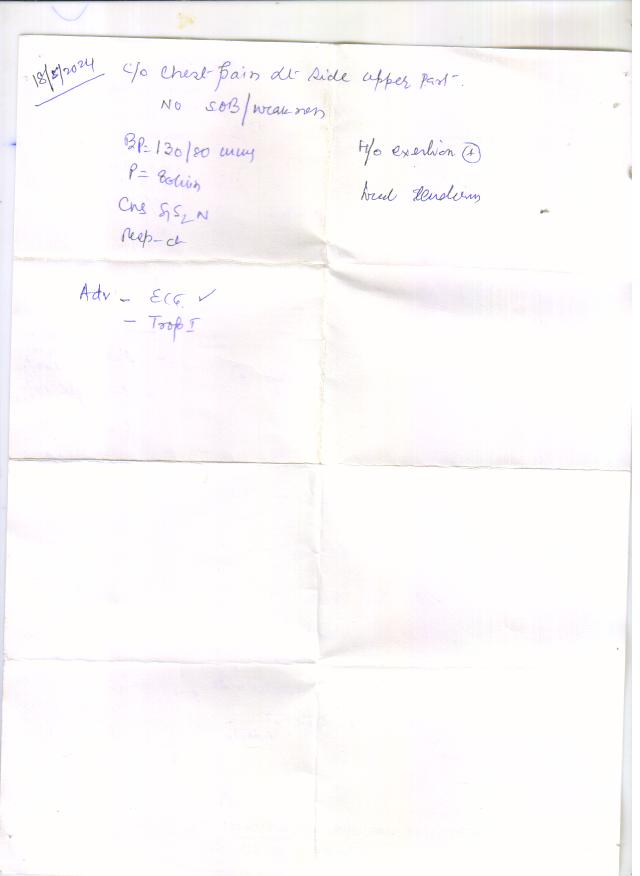 18/5/2024
c/o chest pain Lt side upper part.
No SOB/weakness
BP=130/80 mmHg
H/o exertion (+)
P= 80/min
CVS S1S2 N
Resp - cl
Adv - ECG ✓
- Trop I